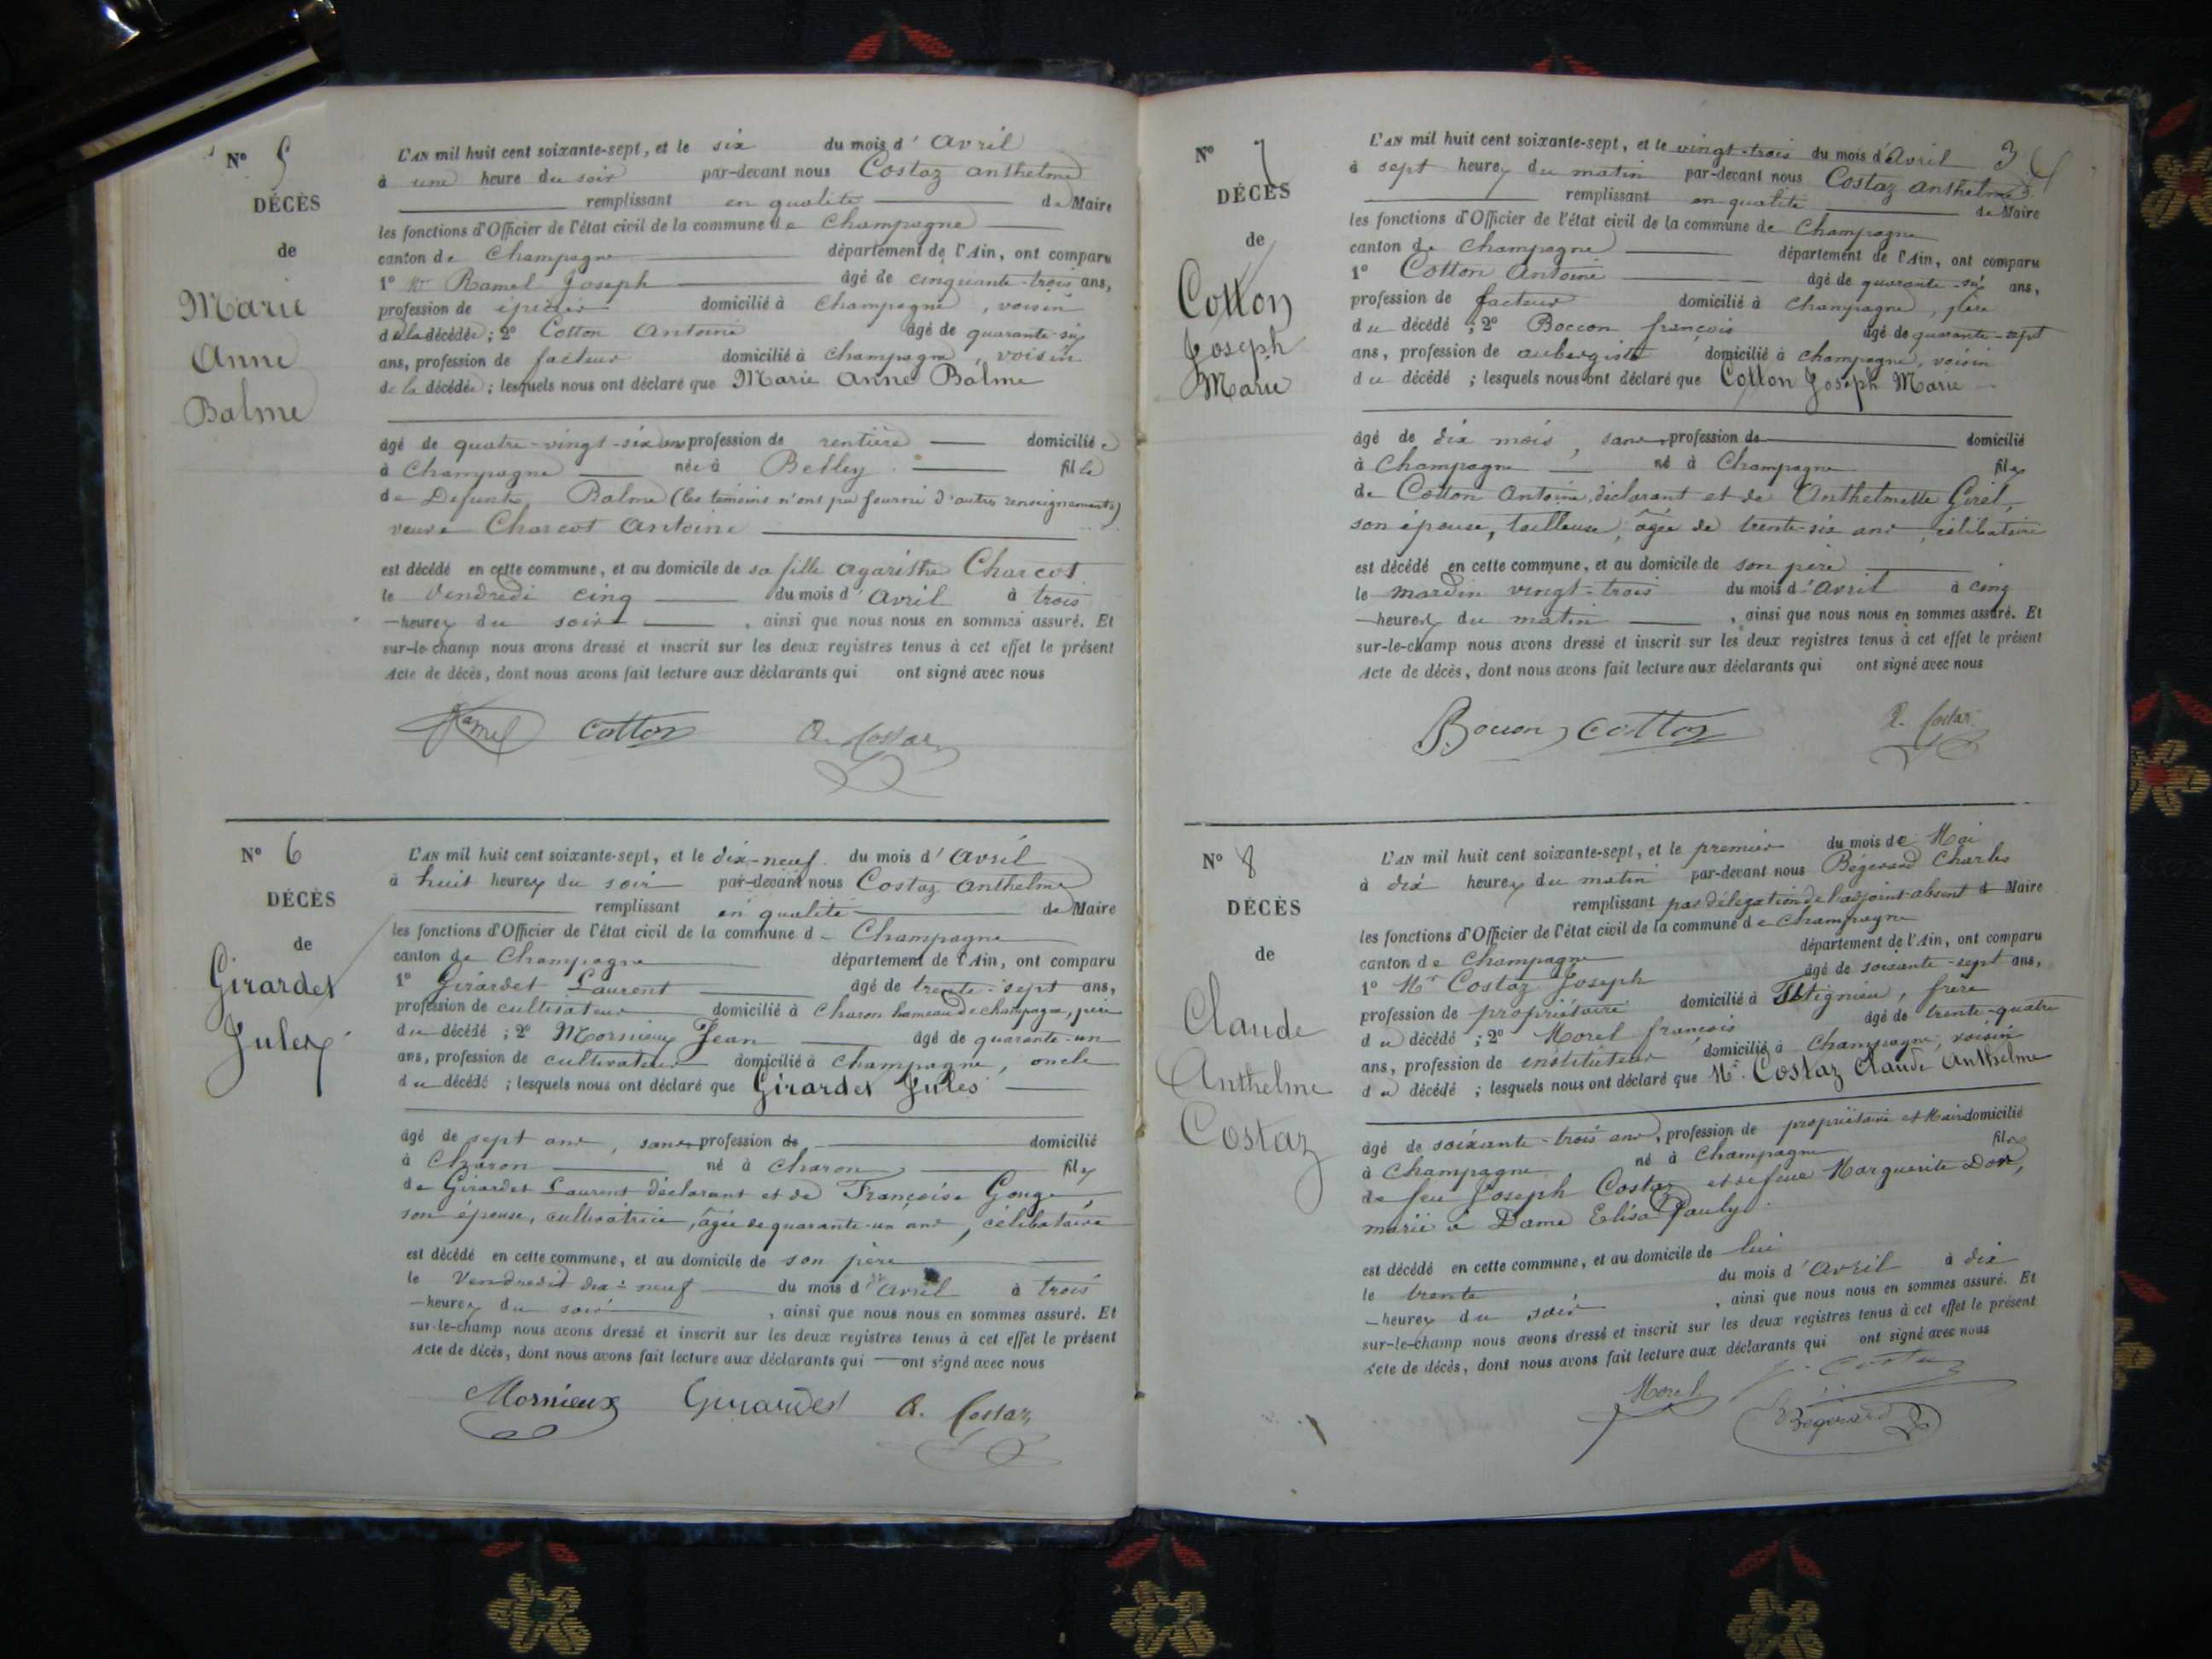 N° 5
DÉCÈS
de
Marie
Anne
Balme
L'AN mil huit cent soixante-sept, et le six du mois d'Avril
à une heure du soir par-devant nous Costaz anthelme
remplissant en qualité de Maire
les fonctions d'Officier de l'état civil de la commune de Champagne
canton de Champagne département de l'Ain, ont comparu
1° Mr Ramel Joseph âgé de cinquante-trois ans,
profession de épicier domicilié à Champagne, voisin
de la décédée ; 2° Cotton Antoine âgé de quarante-six
ans, profession de facteur domicilié à Champagne, voisin
de la décédée ; lesquels nous ont déclaré que Marie Anne Balme
âgé de quatre-vingt-six ans profession de rentière domiciliée
à Champagne née à Belley fille
de Defunts Balme (les témoins n'ont pu fournir d'autres renseignements)
veuve Charcot Antoine
est décédé en cette commune, et au domicile de sa fille agaristhe Charcot
le Vendredi cinq du mois d'Avril à trois
heures du soir, ainsi que nous nous en sommes assuré. Et
sur-le-champ nous avons dressé et inscrit sur les deux registres tenus à cet effet le présent
Acte de décès, dont nous avons fait lecture aux déclarants qui ont signé avec nous
Ramel Cotton A. Costaz
N° 6
DÉCÈS
de
Girardet
Jules
L'AN mil huit cent soixante-sept, et le dix-neuf du mois d'Avril
à huit heures du soir par-devant nous Costaz Anthelme
remplissant en qualité de Maire
les fonctions d'Officier de l'état civil de la commune de Champagne
canton de Champagne département de l'Ain, ont comparu
1° Girardet Laurent âgé de trente-sept ans,
profession de cultivateur domicilié à Charon hameau de champagne, père
du décédé ; 2° Mornieux Jean âgé de quarante-un
ans, profession de cultivateur domicilié à Champagne, oncle
du décédé ; lesquels nous ont déclaré que Girardet Jules
âgé de sept ans, sans profession de domicilié
à Charon né à Charon fils
de Girardet Laurent déclarant et de Françoise Gouge,
son épouse, cultivatrice, âgée de quarante-un ans, célibataire
est décédé en cette commune, et au domicile de son père
le Vendredi dix-neuf du mois d'avril à trois
heures du soir, ainsi que nous nous en sommes assuré. Et
sur-le-champ nous avons dressé et inscrit sur les deux registres tenus à cet effet le présent
Acte de décès, dont nous avons fait lecture aux déclarants qui ont signé avec nous
Mornieux Girardet A. Costaz
3
N° 7
DÉCÈS
de
Cotton
Joseph
Marie
L'AN mil huit cent soixante-sept, et le vingt-trois du mois d'Avril
à sept heures du matin par-devant nous Costaz anthelme
remplissant en qualité de Maire
les fonctions d'Officier de l'état civil de la commune de Champagne
canton de Champagne département de l'Ain, ont comparu
1° Cotton Antoine âgé de quarante-six ans,
profession de facteur domicilié à Champagne, père
du décédé ; 2° Boccon françois âgé de quarante-sept
ans, profession de aubergiste domicilié à champagne, voisin
du décédé ; lesquels nous ont déclaré que Cotton Joseph Marie
âgé de dix mois, sans profession de domicilié
à Champagne né à Champagne fils
de Cotton Antoine, déclarant et de Anthelmette Girel,
son épouse, tailleuse, âgée de trente-six ans, célibataire
est décédé en cette commune, et au domicile de son père
le mardi vingt-trois du mois d'Avril à cinq
heures du matin, ainsi que nous nous en sommes assuré. Et
sur-le-champ nous avons dressé et inscrit sur les deux registres tenus à cet effet le présent
Acte de décès, dont nous avons fait lecture aux déclarants qui ont signé avec nous
Boccon Cotton A. Costaz
N° 8
DÉCÈS
de
Claude
Anthelme
Costaz
L'AN mil huit cent soixante-sept, et le premier du mois de Mai
à dix heures du matin par-devant nous Bégerard Charles
remplissant par délégation de l'adjoint absent d Maire
les fonctions d'Officier de l'état civil de la commune de Champagne
canton de Champagne département de l'Ain, ont comparu
1° Mr Costaz Joseph âgé de soixante-sept ans,
profession de propriétaire domicilié à frère
du décédé ; 2° Morel françois âgé de trente-quatre
ans, profession de instituteur domicilié à Champagne, voisin
du décédé ; lesquels nous ont déclaré que Mr. Costaz Claude Anthelme
âgé de soixante-trois ans, profession de propriétaire et Maire domicilié
à Champagne né à Champagne fils
de feu Joseph Costaz et de feue Marguerite Dor,
marié à Dame Elisa Pauly
est décédé en cette commune, et au domicile de lui
le trente du mois d'Avril à dix
heures du soir, ainsi que nous nous en sommes assuré. Et
sur-le-champ nous avons dressé et inscrit sur les deux registres tenus à cet effet le présent
Acte de décès, dont nous avons fait lecture aux déclarants qui ont signé avec nous
Morel J. Costaz
Bégerard